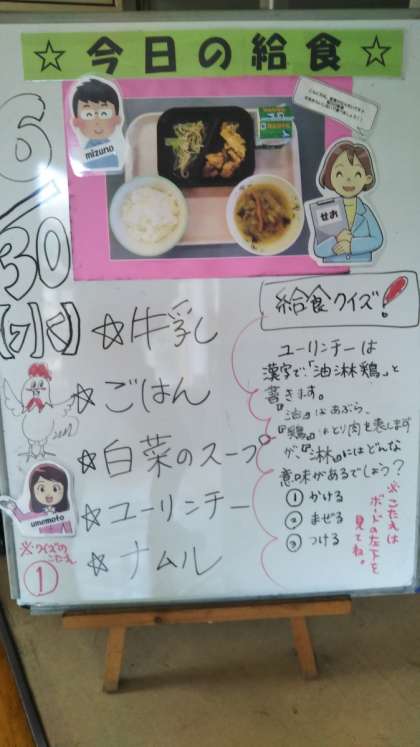 ☆今日の給食☆
6/30(水)
mizuno
せお
☆牛乳
☆ごはん
☆白菜のスープ
☆ユーリンチー
☆ナムル
umemoto
※クイズの
こたえ
①
給食クイズ!
ユーリンチーは
漢字で、『油淋鶏』と
書きます。
『油』はあぶら、
『鶏』はとり肉を表します
が、『淋』にはどんな
意味があるでしょう?
① かける
② まぜる
③ つける
※こたえは
ボードの左下を
見てね。